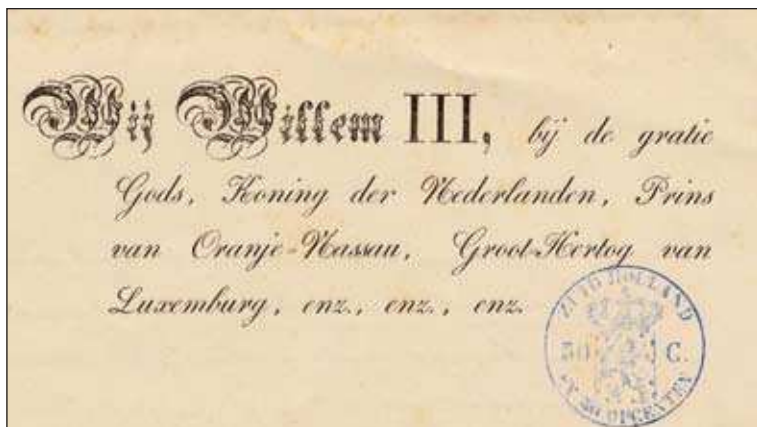 Wij Willem III, bij de gratie
Gods, Koning der Nederlanden, Prins
van Oranje-Nassau, Groot-Hertog van
Luxemburg, enz., enz., enz.
ZUID HOLLAND
50 C.
OPCENTEN